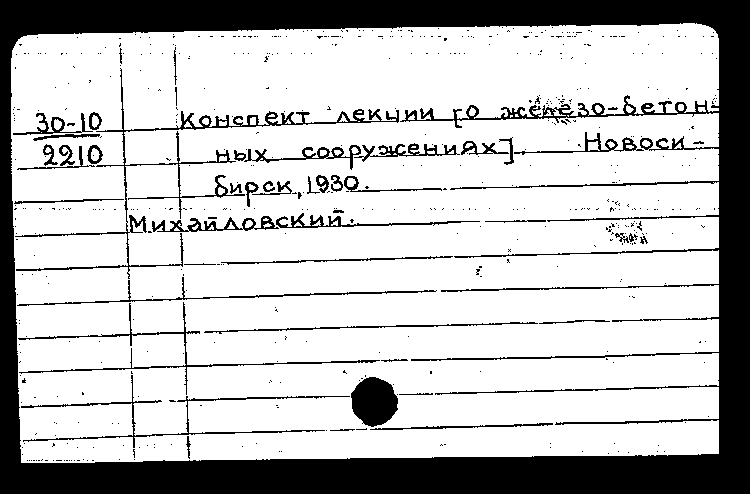 30-10 Конспект лекции [о железо-бетон-
2210 ных сооружениях]. Новоси-
бирск, 1930.
Михайловский.